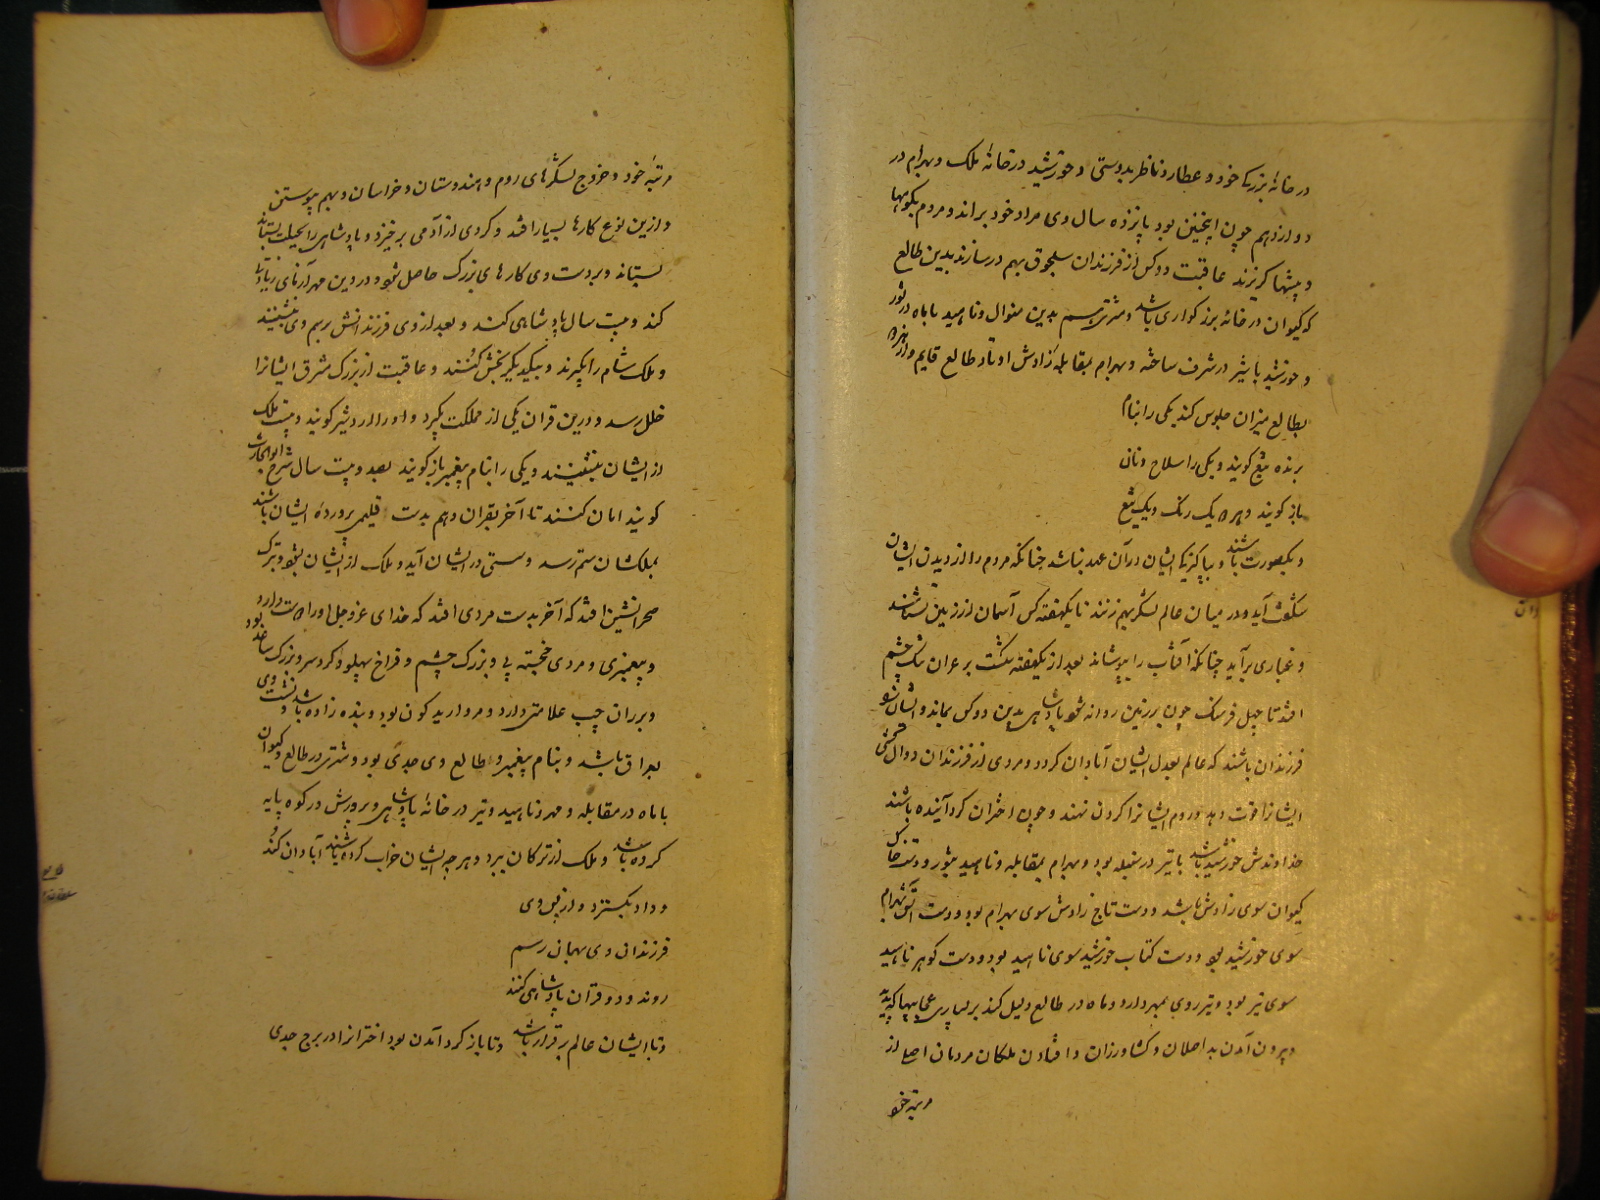 در خانهٔ بزرگی خود و عطارد ناظر بدوستی و خورشید در خانهٔ ملک و بهرام در
دوازدهم چون اینچنین بود پانزده سال وی مراد خود براند و مردم بکوهها
و بیشها گریزند عاقبت دو کس از فرزندان سلجوق بهم در سازند بدین طالع
که کیوان در خانهٔ بزرگواری باشد و مشتری بدین منوال و ناهید با ماه در ثور
و خورشید با تیر در شرف ساخته و بهرام بمقابله زادش اوتاد طالع قایم و از بهره
بطالع میزان جلوس کند یکی را بنام
برنده تیغ گویند و یکی را سلاح و نان
باز گویند و هر یک رنگ و یک تیغ
و یکصورت باشند و بپاکیزگی ایشان در آن عهد نباشد چنانکه مردم را از دیدن ایشان
شگفت آید و در میان عالم لشکر بهم زنند تا یکهفته کس آسمان از زمین نشناسد
و غباری برآید چنانکه آفتاب را بپوشاند بعد از یکهفته شکست بر تنگ چشم
افتد تا چهل فرسنگ خون بر زمین روانه شود پادشاهی بدین دو کس بماند و ایشان
فرزندان باشند که عالم بعدل ایشان آبادان گردد و مردی از فرزندان دوال
ایشانرا قوت دهد و روم ایشانرا گردن نهند و چون اختران گرد آینده باشند
خداوندش خورشید باشد با تیر در سنبله بود و بهرام بمقابله و ناهید بثور و دست
کیوان سوی زادش باشد و دست تاج زادش سوی بهرام بود و دست بهرام
سوی خورشید بود و دست کتاب خورشید سوی ناهید بود و دست گوهر ناهید
سوی تیر بود و تیر روی بمهر دارد و ماه در طالع دلیل کند بر بسیاری عجایبها که پدید
و بیرون آمدن بد اصلان و کشاورزان و افتادن ملکان مردمان اصیل از
مرتبهٔ خود
مرتبهٔ خود و خروج لشکرهای روم و هندوستان و خراسان و بهم پیوستن
و ازین نوع کارها بسیار افتد و کردی از آدمی برخیزد و پادشاهی را بحیلت بستاند
بستاند و بر دست وی کارهای بزرگ حاصل شود و در دین مهر آزمای
کند و بیست سال پادشاهی کند و بعد از وی فرزندانش برسم وی بنشینند
و ملک شام را بگیرند و بیکدیگر بخش کنند و عاقبت از بزرگ مشرق ایشانرا
خلل رسد و درین قران یکی از مملکت بگیرد و او را اردشیر گویند و بیست ملک
از ایشان بنشینند و یکی را بنام پیغمبر باز گویند بعد دویست سال
گویند امان کنند تا آخر بقران دهم بدست پروردهٔ ایشان باشند
بملکشان ستم رسد و سستی در ایشان آید و ملک از ایشان بشود و ترک
صحرانشین افتد که آخر بدست مردی افتد که خدای عزوجل او را دوست دارد
و پیغمبری و مردی خجسته پی و بزرگ چشم و فراخ پهلو و گرد سر و بزرگ ساعد بود
و بر ران چپ علامتی دارد و مروارید گون بود و بنده زاده باشد
بعراق باشد و بنام پیغمبر و طالع وی جدی بود و مشتری در طالع و کیوان
با ماه در مقابله و مهر و ناهید و تیر در خانهٔ پادشاهی و پرورش در کوه پایه
کرده باشد و ملک از ترکان ببرد و هر چه ایشان خراب کرده باشند آبادان کند
و داد بگسترد و از پس وی
فرزندان وی بهمان رسم
روند و دو قران پادشاهی کنند
و تا ایشان عالم برقرار باشد و تا باز گرد آمدن بود اخترانرا در برج جدی